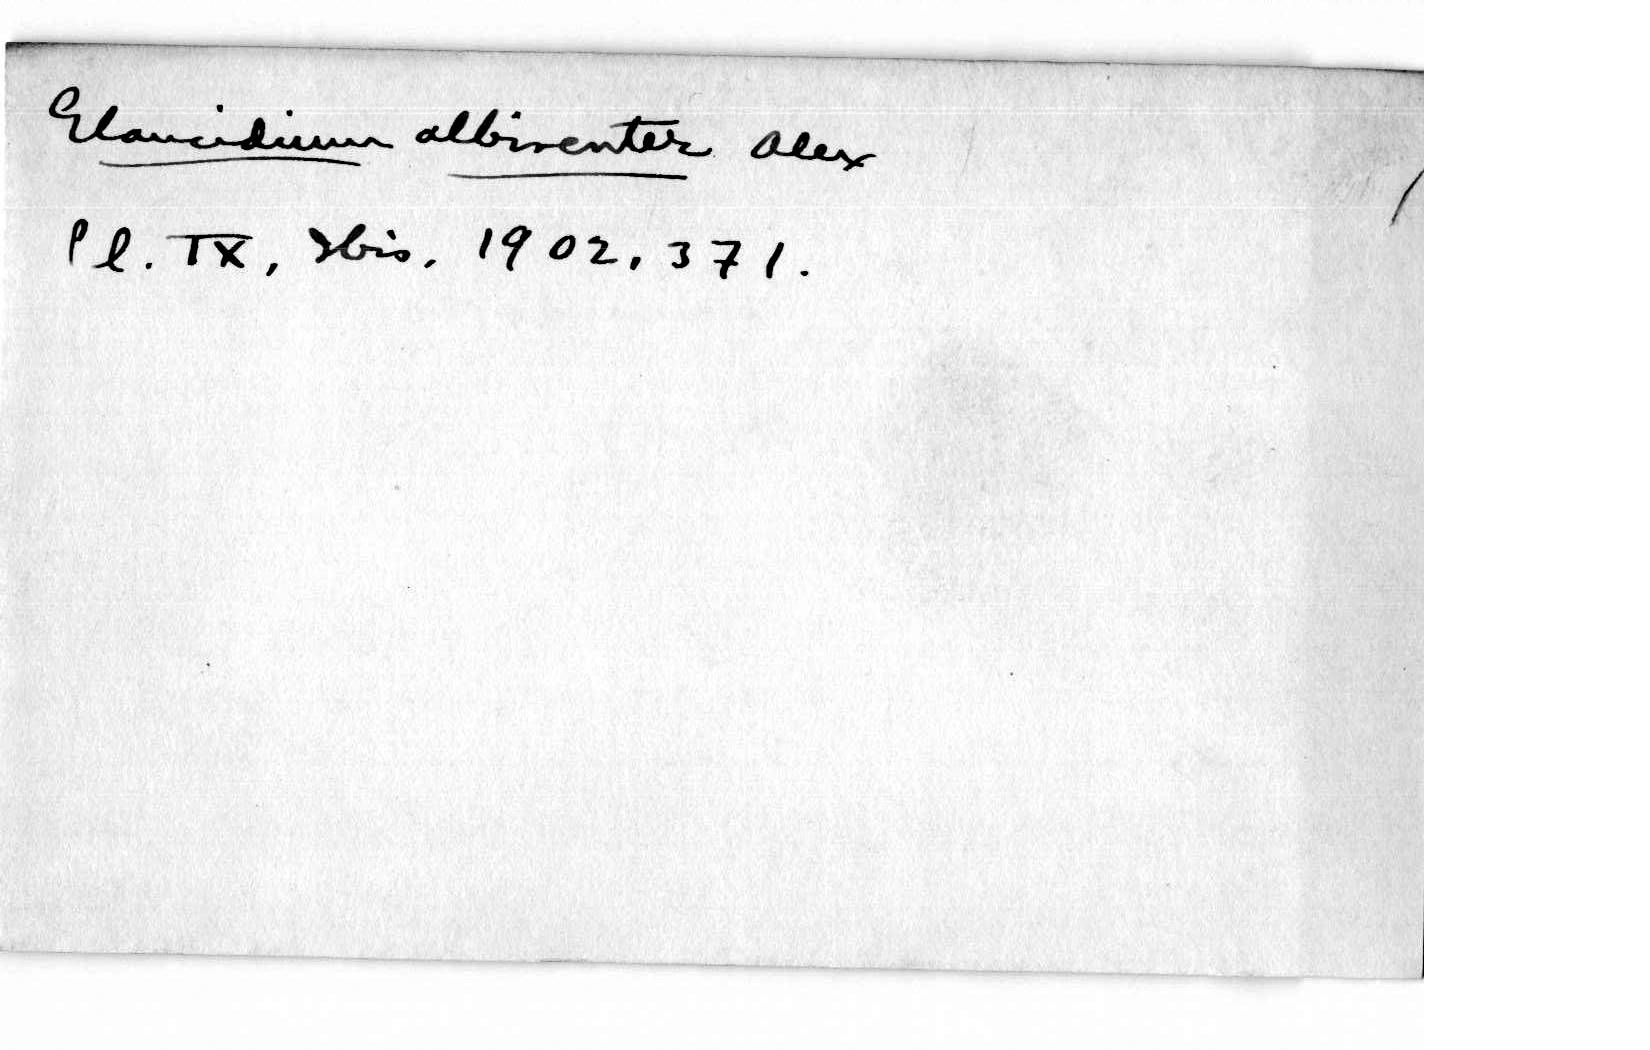 Glaucidium albiventer Alex
Pl. IX, Ibis, 1902, 371.